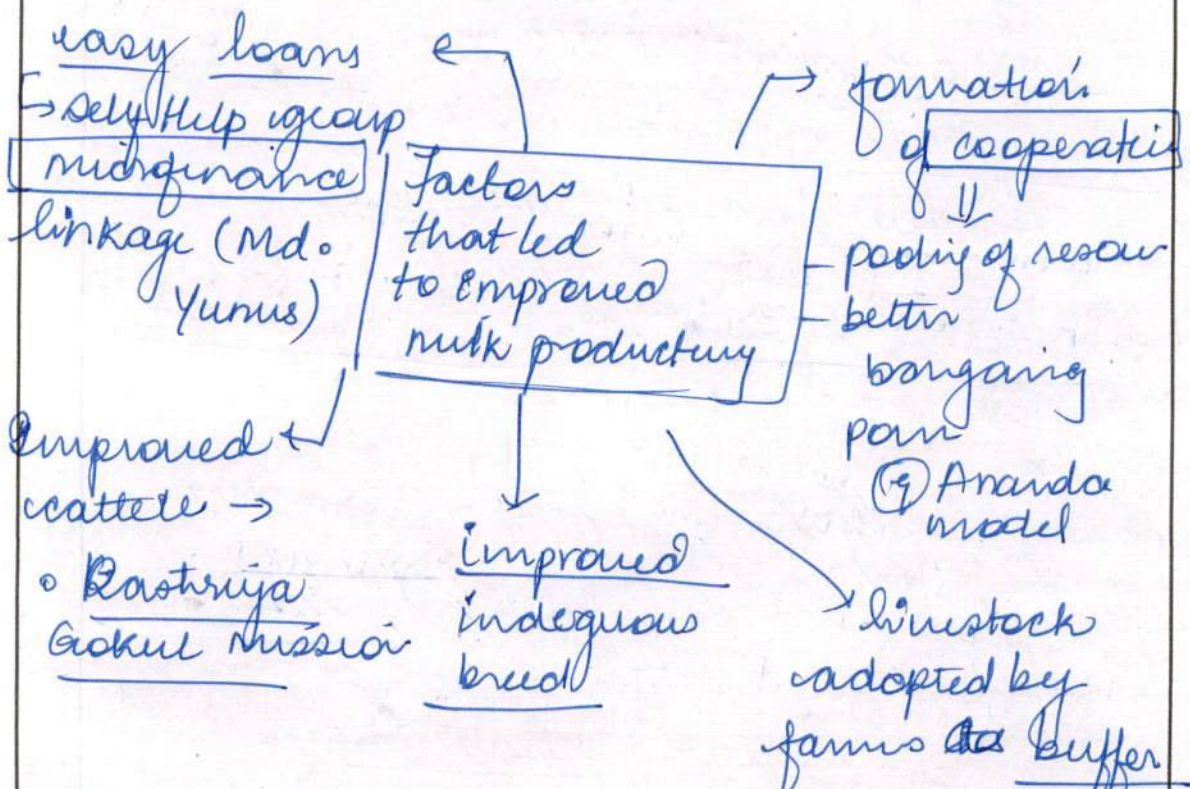 easy loans
→ Self Help group
microfinance
linkage (Md.
Yunus)
Factors
that led
to improved
milk productivity
→ formation
of cooperatie
⇓
pooling of resour
better
bargaing
powr
eg Ananda
model
Improved
cattele →
• Rashtriya
Gokul Mission
improved
indeguous
breed
livestock
adopted by
farms as buffer